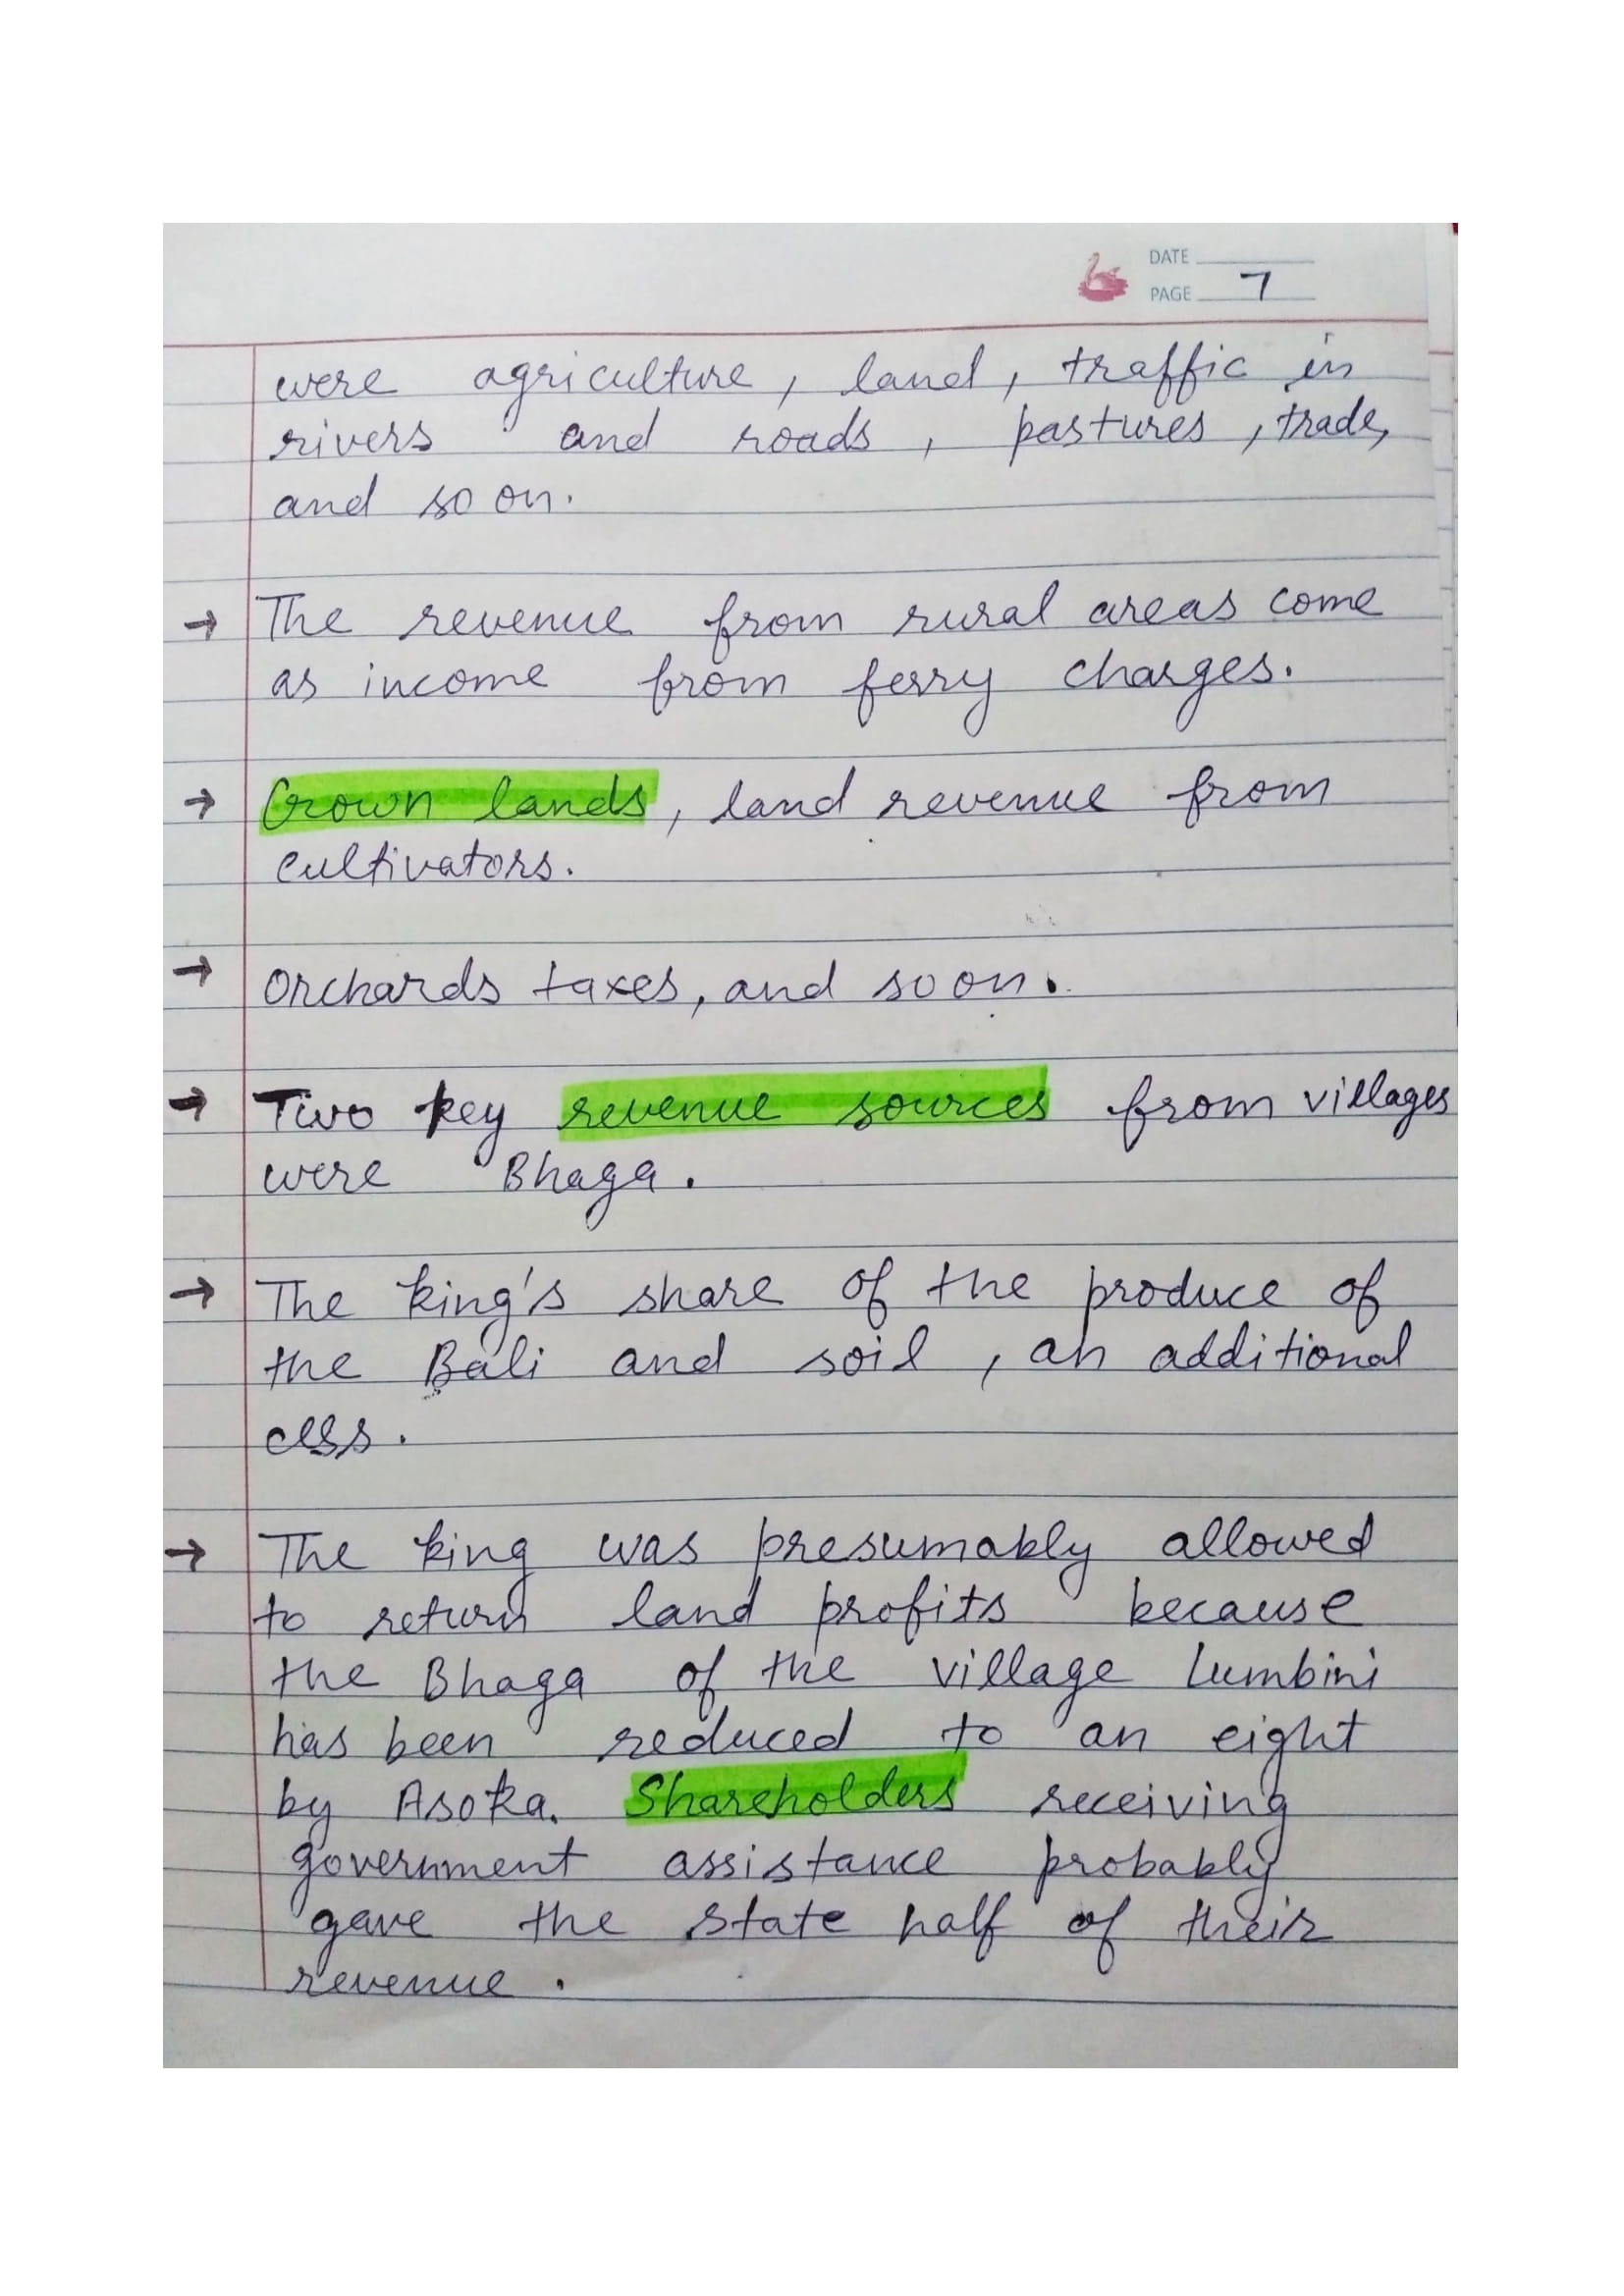 DATE
PAGE 7
were agriculture, land, traffic in
rivers and roads, pastures, trade,
and so on.
→ The revenue from rural areas come
as income from ferry charges.
→ Crown lands, land revenue from
cultivators.
→ Orchards taxes, and so on.
→ Two key revenue sources from villages
were Bhaga.
→ The king's share of the produce of
the Bali and soil, an additional
cess.
→ The king was presumably allowed
to return land profits because
the Bhaga of the village Lumbini
has been reduced to an eight
by Asoka. Shareholders receiving
government assistance probably
gave the state half of their
revenue.